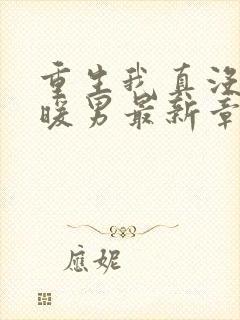 重生我真没
暖男最新章
应妮